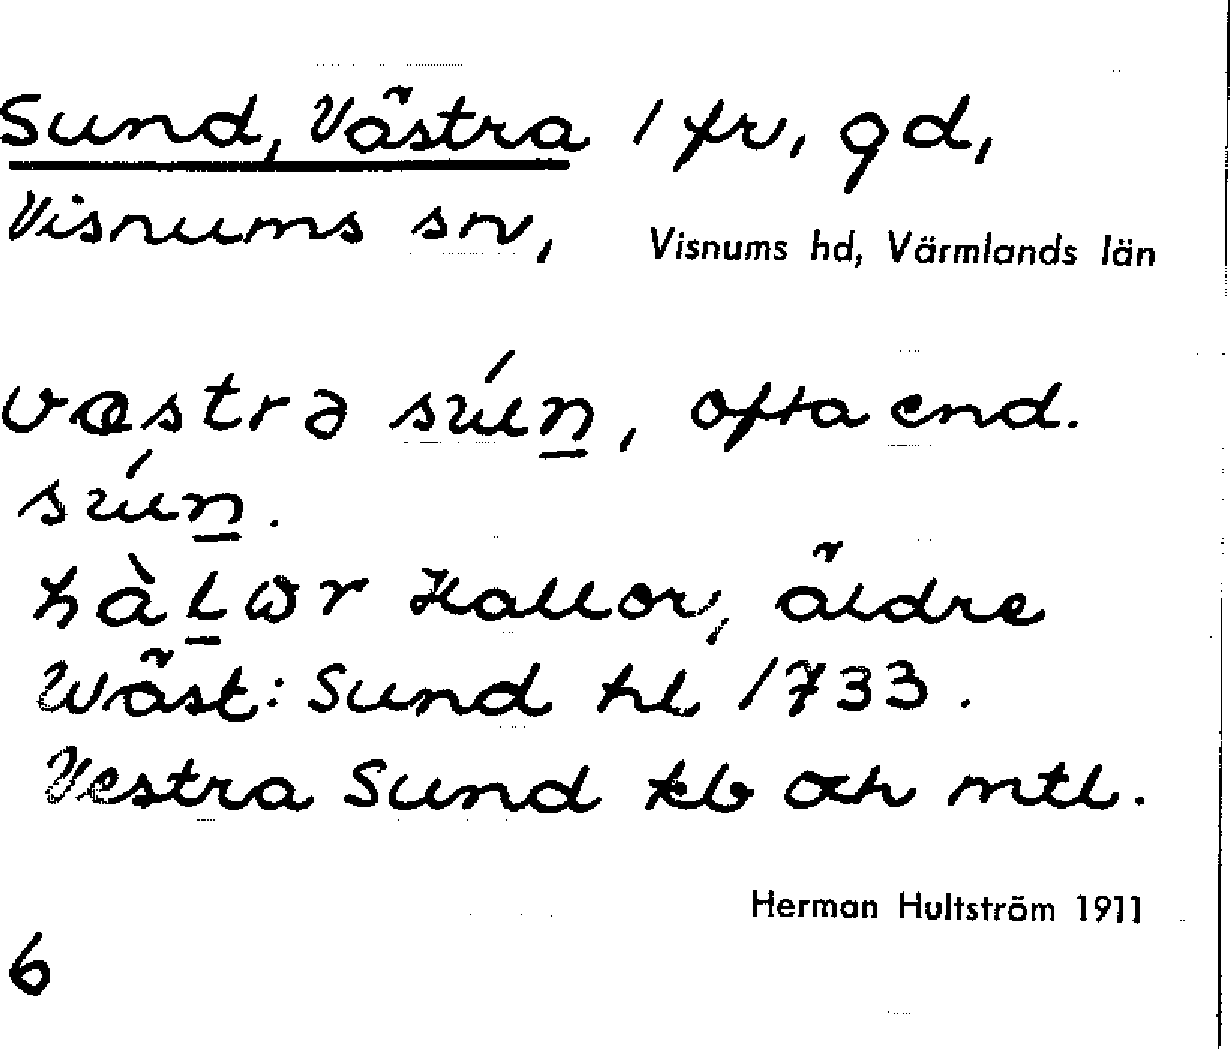 Sund, Västra 1 fr, gd,
Visnums sn, Visnums hd, Värmlands län
væstrə súen, ofta end.
súen.
hàlωr Hallor, äldre
Wäst: Sund hl 1733.
Vestra Sund kb och mtl.
Herman Hultström 1911
6